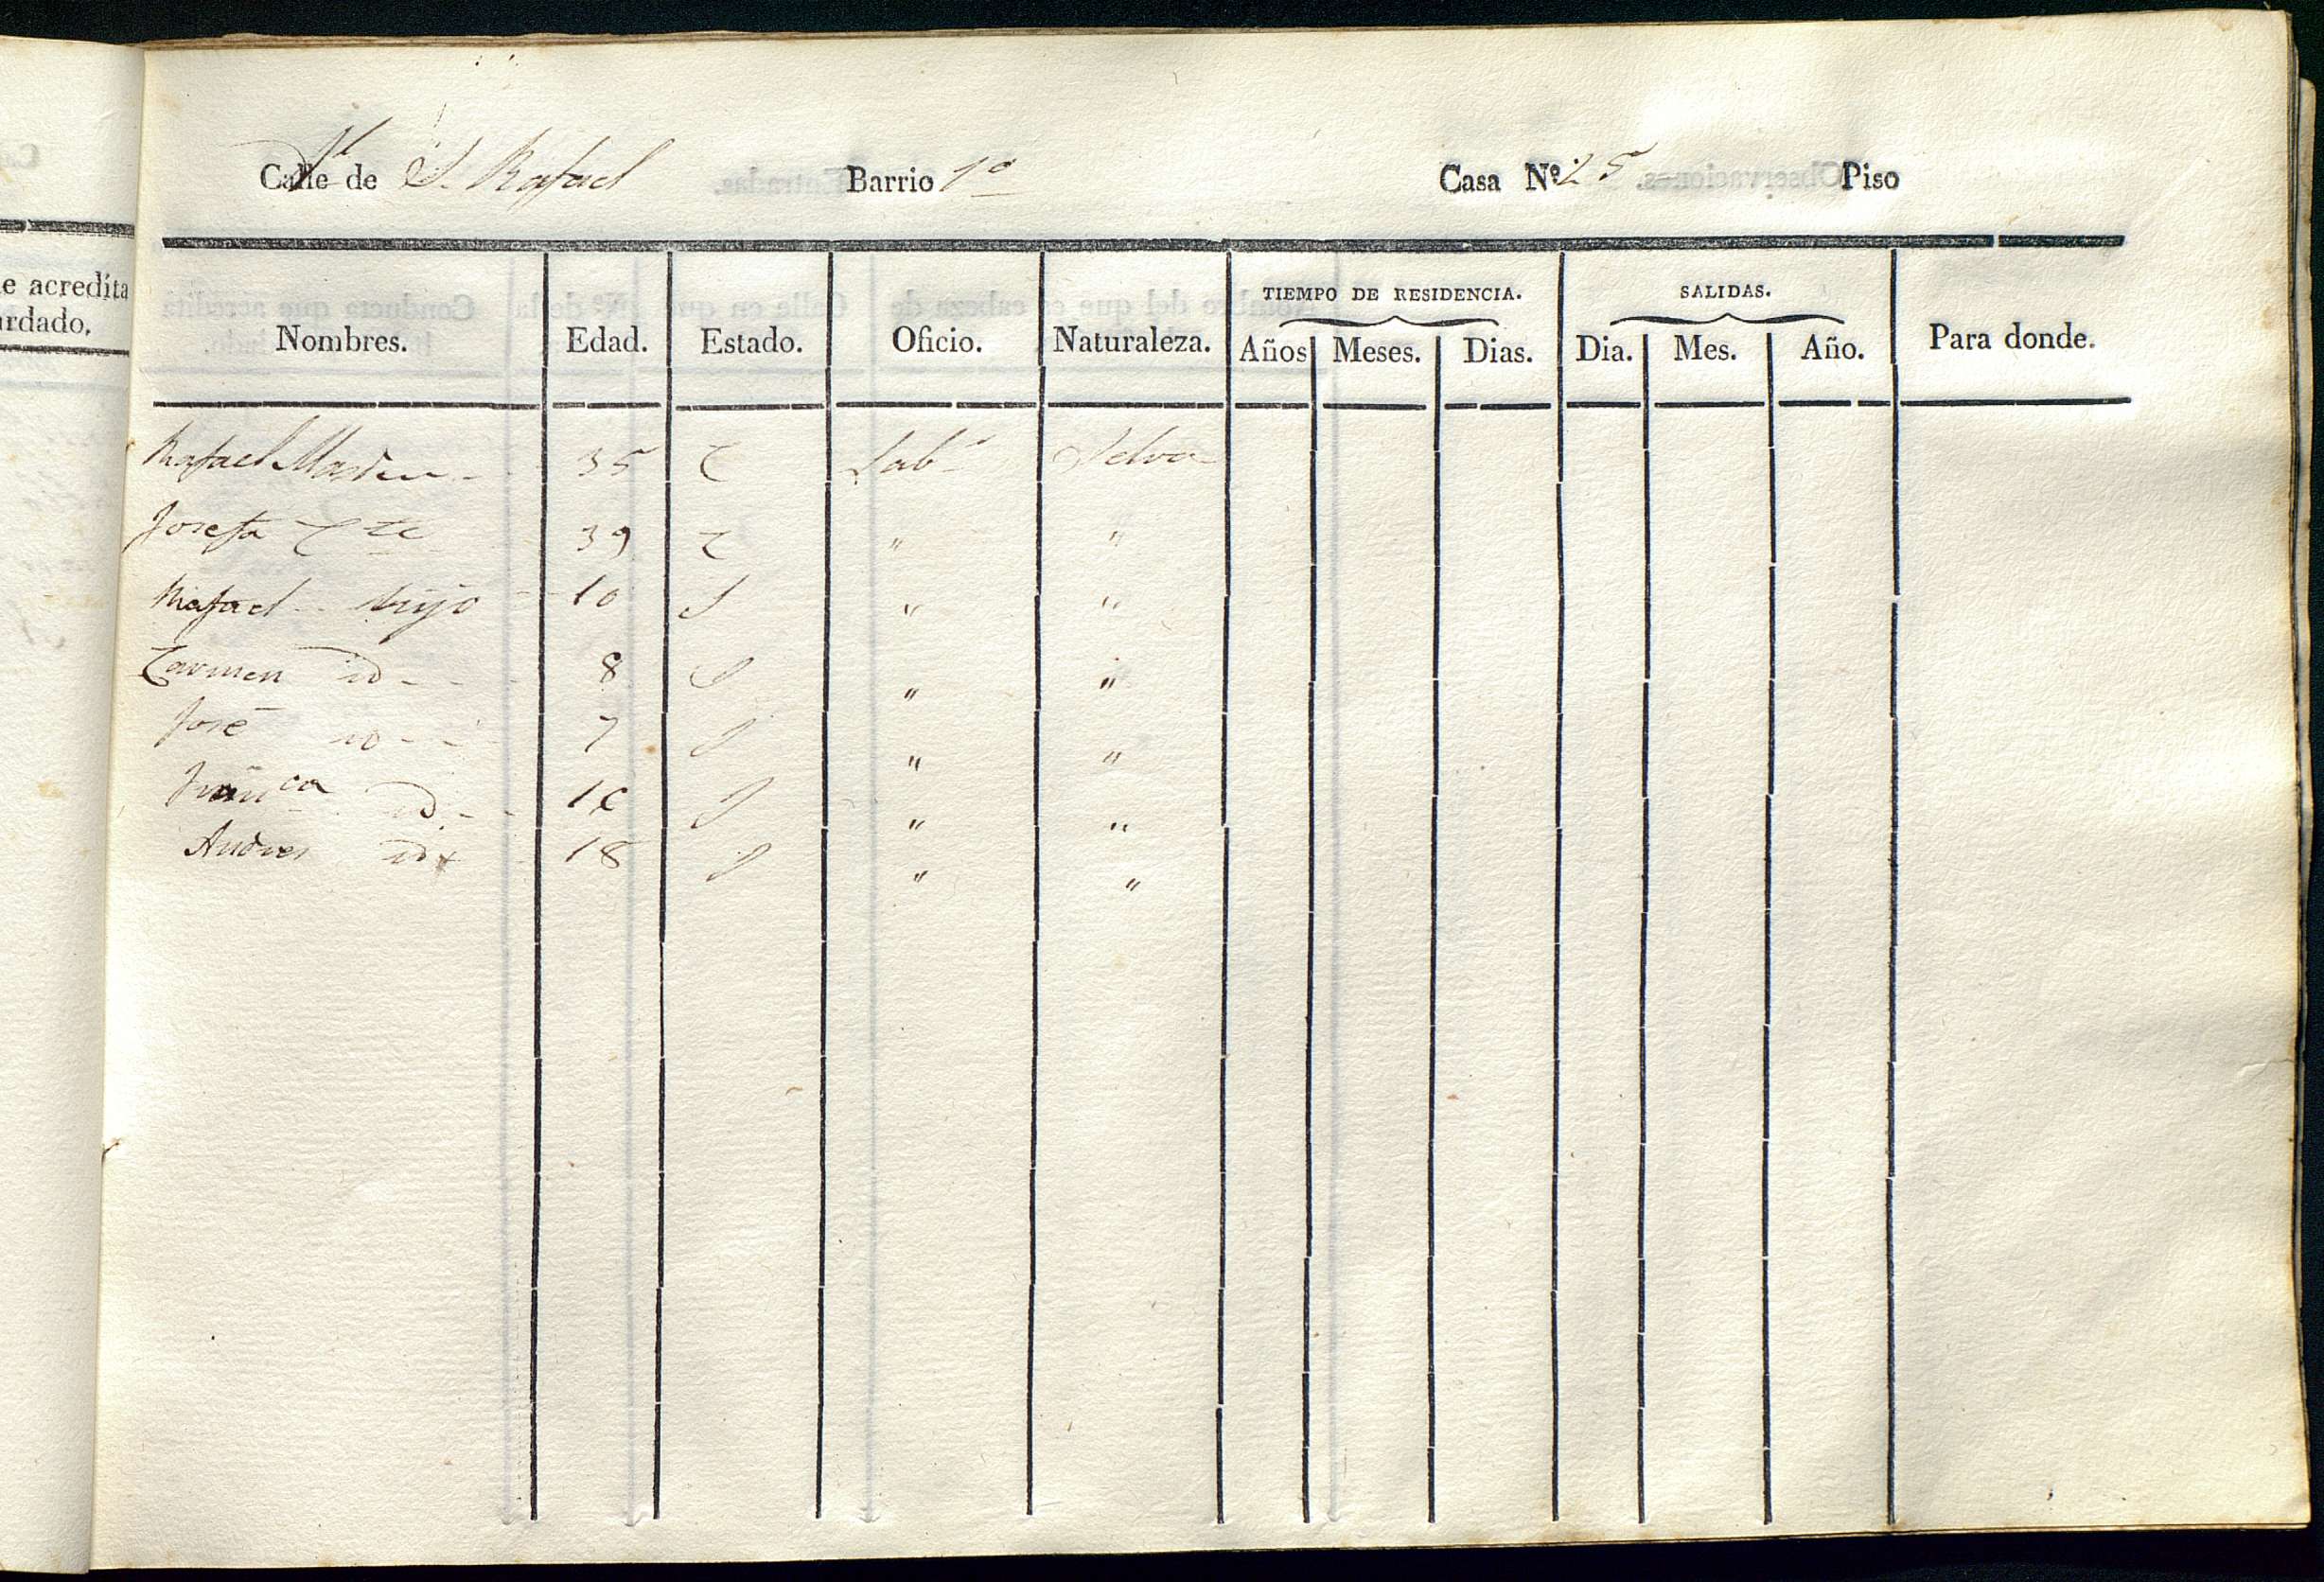 Calle de S. Rafael Barrio 1º Casa Nº 25 Piso
e acredita
ardado.
TIEMPO DE RESIDENCIA. SALIDAS.
Nombres. Edad. Estado. Oficio. Naturaleza. Años Meses. Dias. Dia. Mes. Año. Para donde.
Rafael 35 C Labr Selva
Josefa 39 C " "
Rafael hijo 10 S " "
Carmen id 8 S " "
José id 7 S " "
id S " "
Andres id 18 S " "